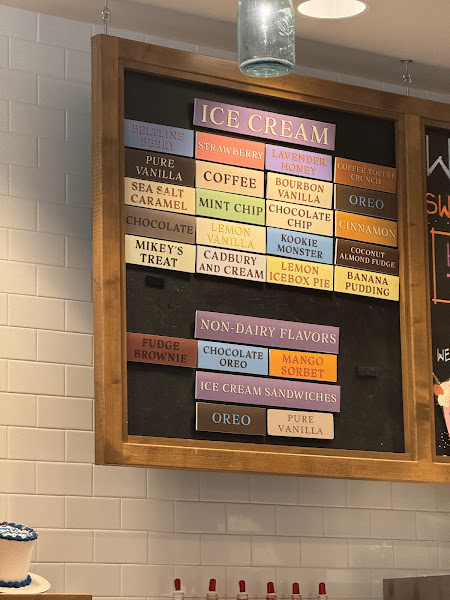 ICE CREAM
BELTLINE
BERRY
STRAWBERRY
LAVENDER
HONEY
COFFEE TOFFEE
CRUNCH
PURE
VANILLA
COFFEE
BOURBON
VANILLA
OREO
SEA SALT
CARAMEL
MINT CHIP
CHOCOLATE
CHIP
CINNAMON
CHOCOLATE
LEMON
VANILLA
KOOKIE
MONSTER
COCONUT
ALMOND FUDGE
MIKEY'S
TREAT
CADBURY
AND CREAM
LEMON
ICEBOX PIE
BANANA
PUDDING
NON-DAIRY FLAVORS
FUDGE
BROWNIE
CHOCOLATE
OREO
MANGO
SORBET
ICE CREAM SANDWICHES
OREO
PURE
VANILLA